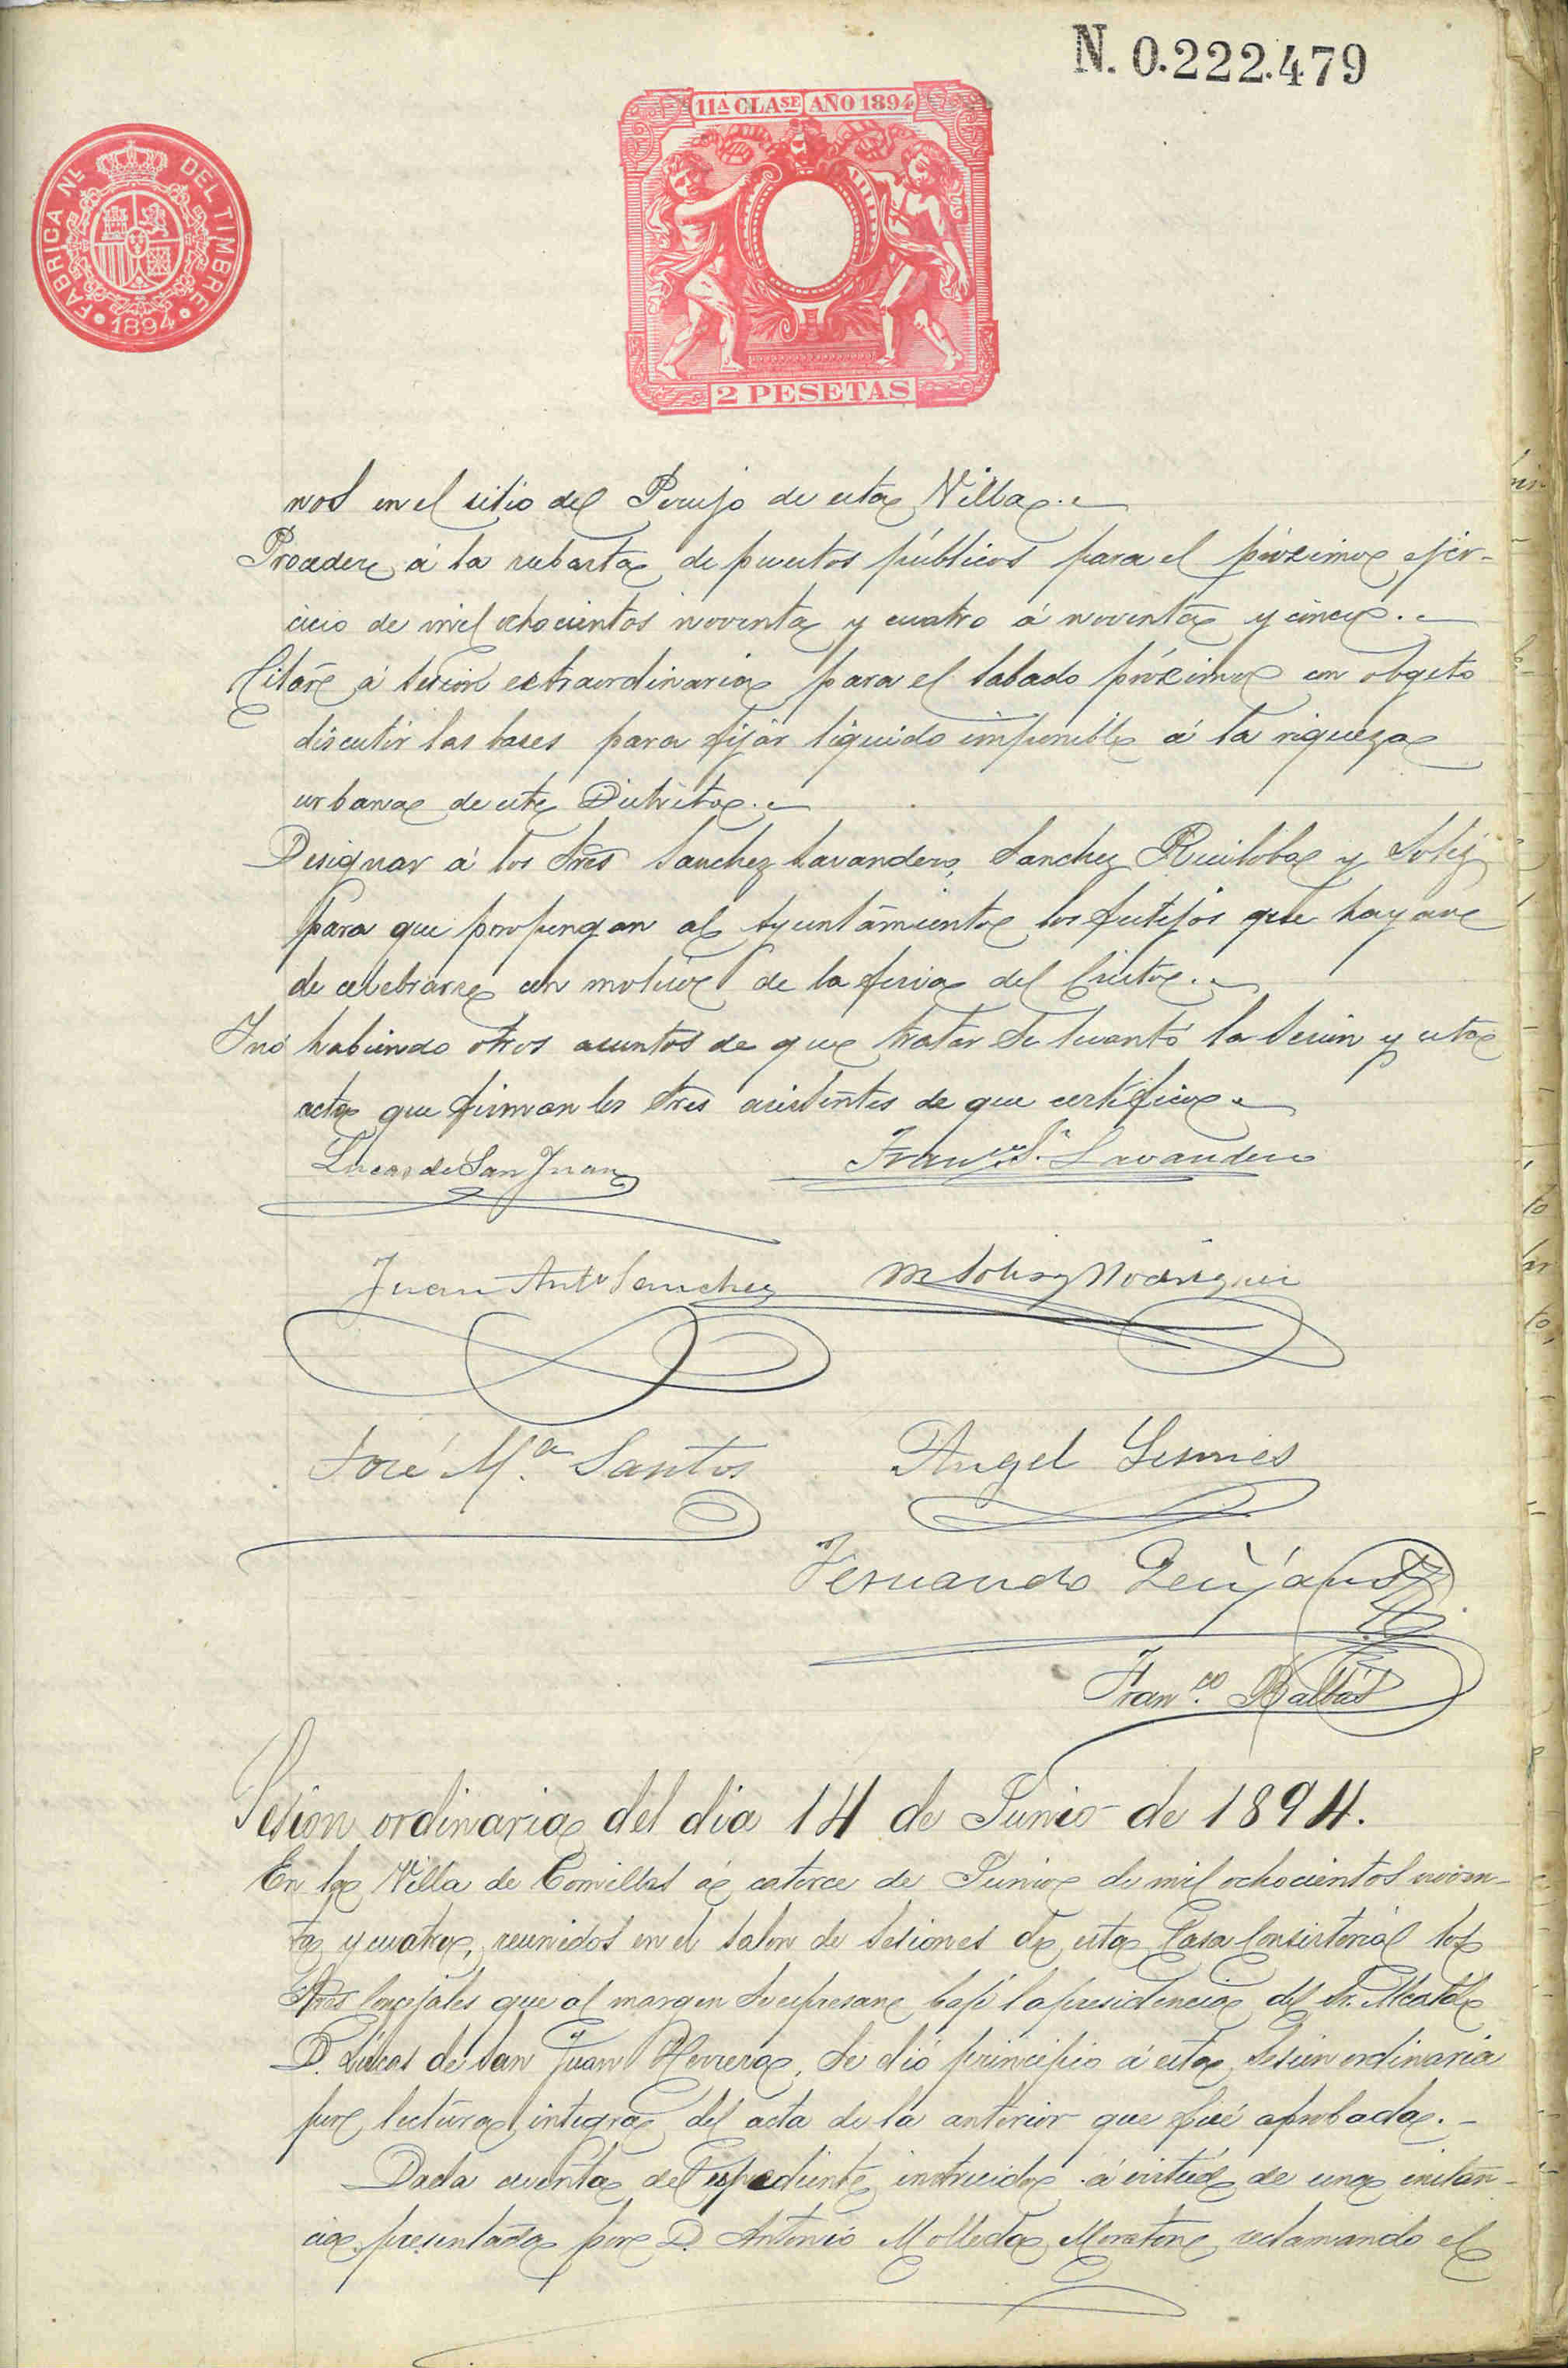 N. 0.222.479
11ª CLASE AÑO 1894
FABRICA NL. DEL TIMBRE
1894
2 PESETAS
nos en el sitio del Perujo de esta Villa.
Proceder á la subasta de puestos públicos para el próximo ejer-
cicio de mil ochocientos noventa y cuatro á noventa y cinco.
Citar á sesion extraordinaria para el Sabado próximo con objeto
discutir las bases para fijar líquido imponible á la riqueza
urbana de este Distrito.
Designar á los Sres Sanchez Lavandero, Sanchez Ruiloba y Solis
para que propongan al Ayuntamiento los festejos que hayan
de celebrarse con motivo de la feria del Cristo.
Y no habiendo otros asuntos de que tratar se levantó la sesion y esta
acta que firman los Sres asistentes de que certifico.
Lucas de San Juan
Franco. S. Lavandero
Juan Anto Sanchez
M Solis y Rodriguez
José Mª Santos
Angel
Fernando
Franco. Balbás
Sesion ordinaria del dia 14 de Junio de 1894.
En la Villa de Comillas á catorce de Junio de mil ochocientos noven-
ta y cuatro, reunidos en el Salon de Sesiones de esta Casa Consistorial los
Sres Concejales que al margen se espresan bajo la presidencia del Sr. Alcalde
D. Lúcas de San Juan Herrera, se dió principio á esta sesion ordinaria
por lectura integra del acta de la anterior que fué aprobada.
Dada cuenta del espediente instruido á virtud de una instan-
cia presentada por D. Antonio Molleda Moraton reclamando el